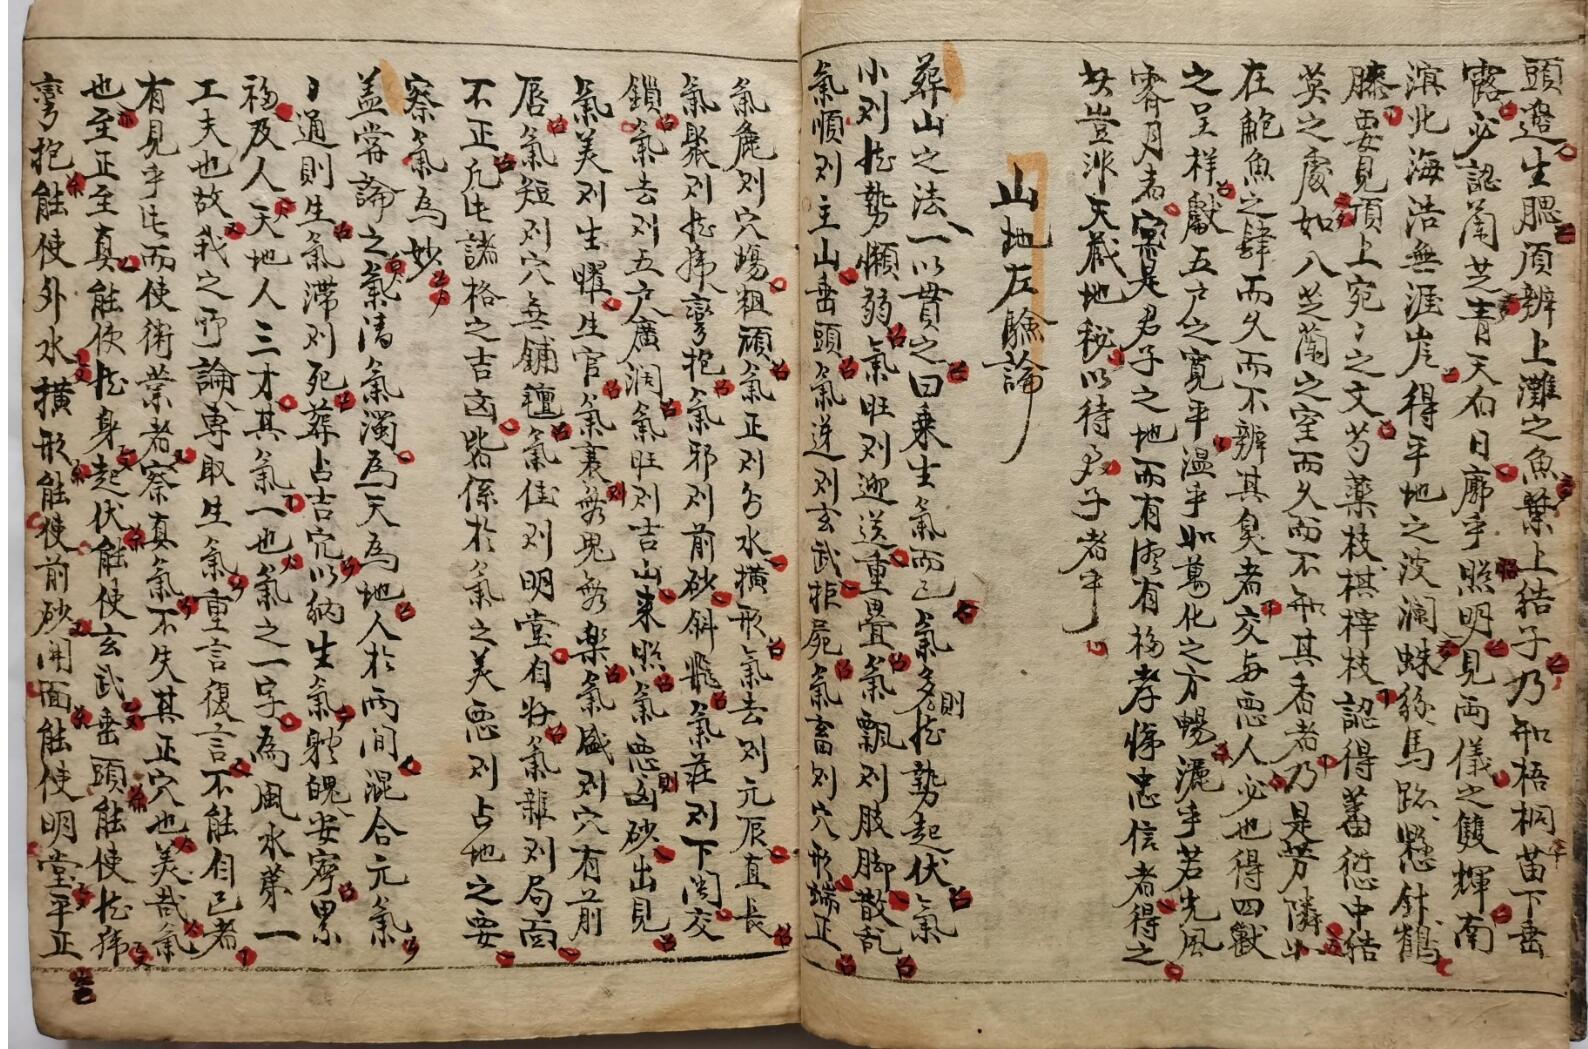 頭邉生腮須辨上灘之魚葉上結子乃知梧桐苗下垂
露必認蘭芝青天白日廓乎照明見両儀之雙輝南
濱北海浩無涯崖得平地之波瀾蛛絲馬跡懸針鶴
膝要見頂上宛〻之文芍薬枝棋梓枝認得蕃衍中結
英之處如入芝蘭之室而久而不知其香者乃是芳隣少
在鮑魚之肆而久而不辨其臭者交与悪人必也得四獸
之呈样獻五戸之寛平温乎如萬化之方暢灑乎若光風
霽月者㝎是君子之地而有德有福孝悌忠信者得之
此豈非天蔵地秘以待君子者乎
山地左驗論
葬山之法一以貫之曰乗生氣而已氣多則龙勢起伏氣
小刈龙勢懶弱氣旺刈迎送重畳氣飄刈肢脚散乱
氣順刈主山垂頭氣逆刈玄武拒屍氣畜刈穴形端正
氣麁刈穴塲粗頑氣正刈分水横形氣去刈元辰直長
氣聚刈龙㡳彎抱氣邪刈前砂斜飛氣莊刈下関交
鎖氣去刈五户廣濶氣旺刈吉山来照氣悪則凶砂出見
氣美刈生曜生官氣衰刈無鬼無楽氣盛刈穴有前
唇氣短刈穴無鋪氊氣佳刈明堂自好氣雜刈局面
不正凡此諸格之吉凶皆係於氣之美悪刈占地之要
察氣為妙
盖甞論之氣清氣濁為天為地人於両间混合元氣
〻通則生氣滯刈死葬占吉穴以納生氣體魄安寕累
福及人天地人三才其氣一也氣之一字為風水苐一
工夫也故我之所論専取生氣重言復言不能自已者
有見乎此而使術業者察真氣不失其正穴也美哉氣
也至正至真能使龙身起伏能使玄武垂頭能使龙㡳
彎抱能使外水横形能使前砂開面能使明堂平正